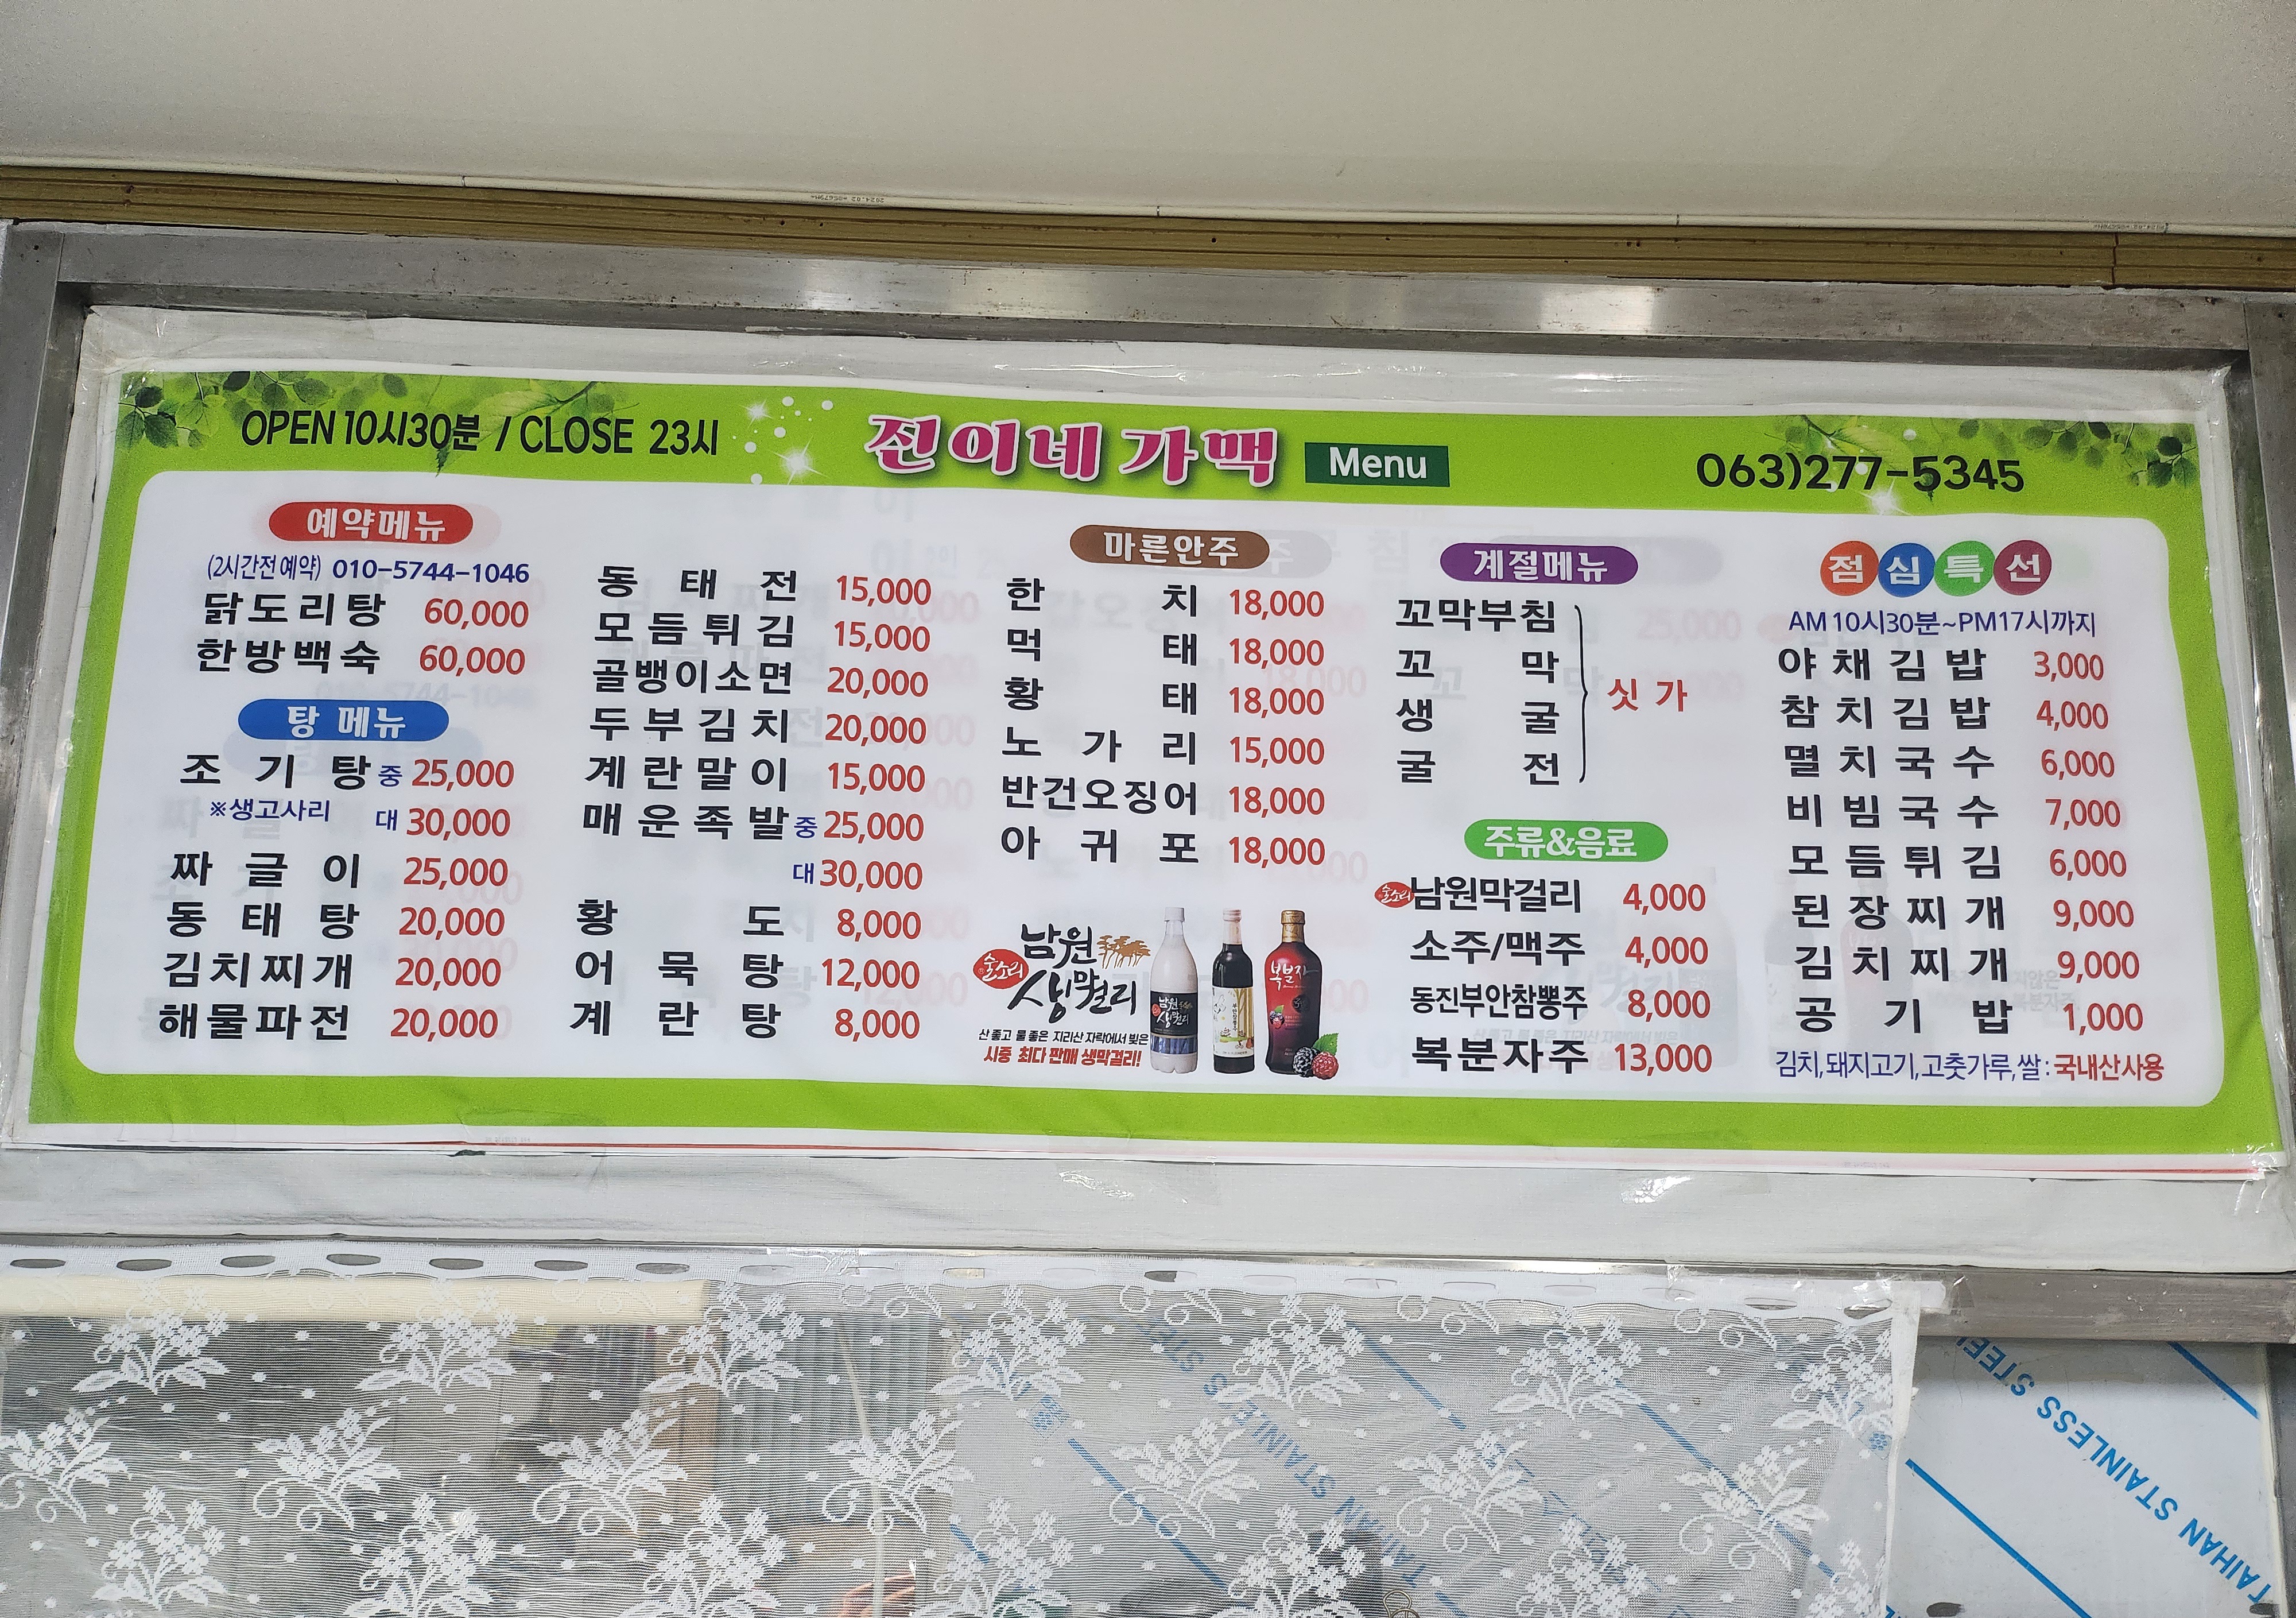 OPEN 10시30분 / CLOSE 23시
진이네 가맥 Menu
063)277-5345
예약메뉴
(2시간전 예약) 010-5744-1046
닭도리탕 60,000
한방백숙 60,000
탕 메뉴
조기탕 중 25,000
※생고사리 대 30,000
짜글이 25,000
동태탕 20,000
김치찌개 20,000
해물파전 20,000
동태전 15,000
모듬튀김 15,000
골뱅이소면 20,000
두부김치 20,000
계란말이 15,000
매운족발 중 25,000
대 30,000
황도 8,000
어묵탕 12,000
계란탕 8,000
마른안주
한치 18,000
먹태 18,000
황태 18,000
노가리 15,000
반건오징어 18,000
아귀포 18,000
술소리 남원 생막걸리
산 좋고 물 좋은 지리산 자락에서 빚은
시중 최다 판매 생막걸리!
남원
생막걸리
복분자
계절메뉴
꼬막부침
꼬막
생굴
굴전
싯가
주류&음료
술소리 남원막걸리 4,000
소주/맥주 4,000
동진부안참뽕주 8,000
복분자주 13,000
점심특선
AM 10시30분~PM17시까지
야채김밥 3,000
참치김밥 4,000
멸치국수 6,000
비빔국수 7,000
모듬튀김 6,000
된장찌개 9,000
김치찌개 9,000
공기밥 1,000
김치,돼지고기,고춧가루,쌀 : 국내산사용
STAINLESS STEEL
TAIHAN STAINLESS STEEL